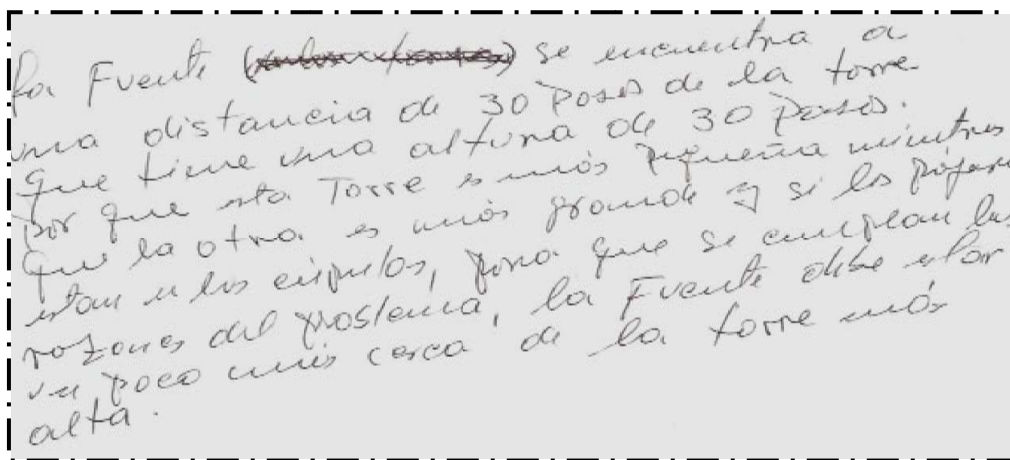 La Fuente se encuentra a
una distancia de 30 Pasos de la torre
que tiene una altura de 30 Pasos.
por que esta Torre es más pequeña mientras
que la otra es más grande y si los pájaros
estan en las cúpulas, para que se cumplan las
razones del problema, la Fuente debe estar
un poco más cerca de la torre más
alta.